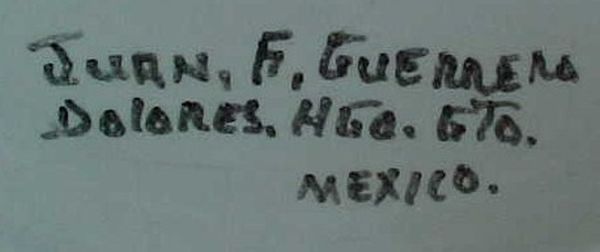 JUAN. F. GUERRERO
DOLORES. HGO. GTO.
MEXICO.